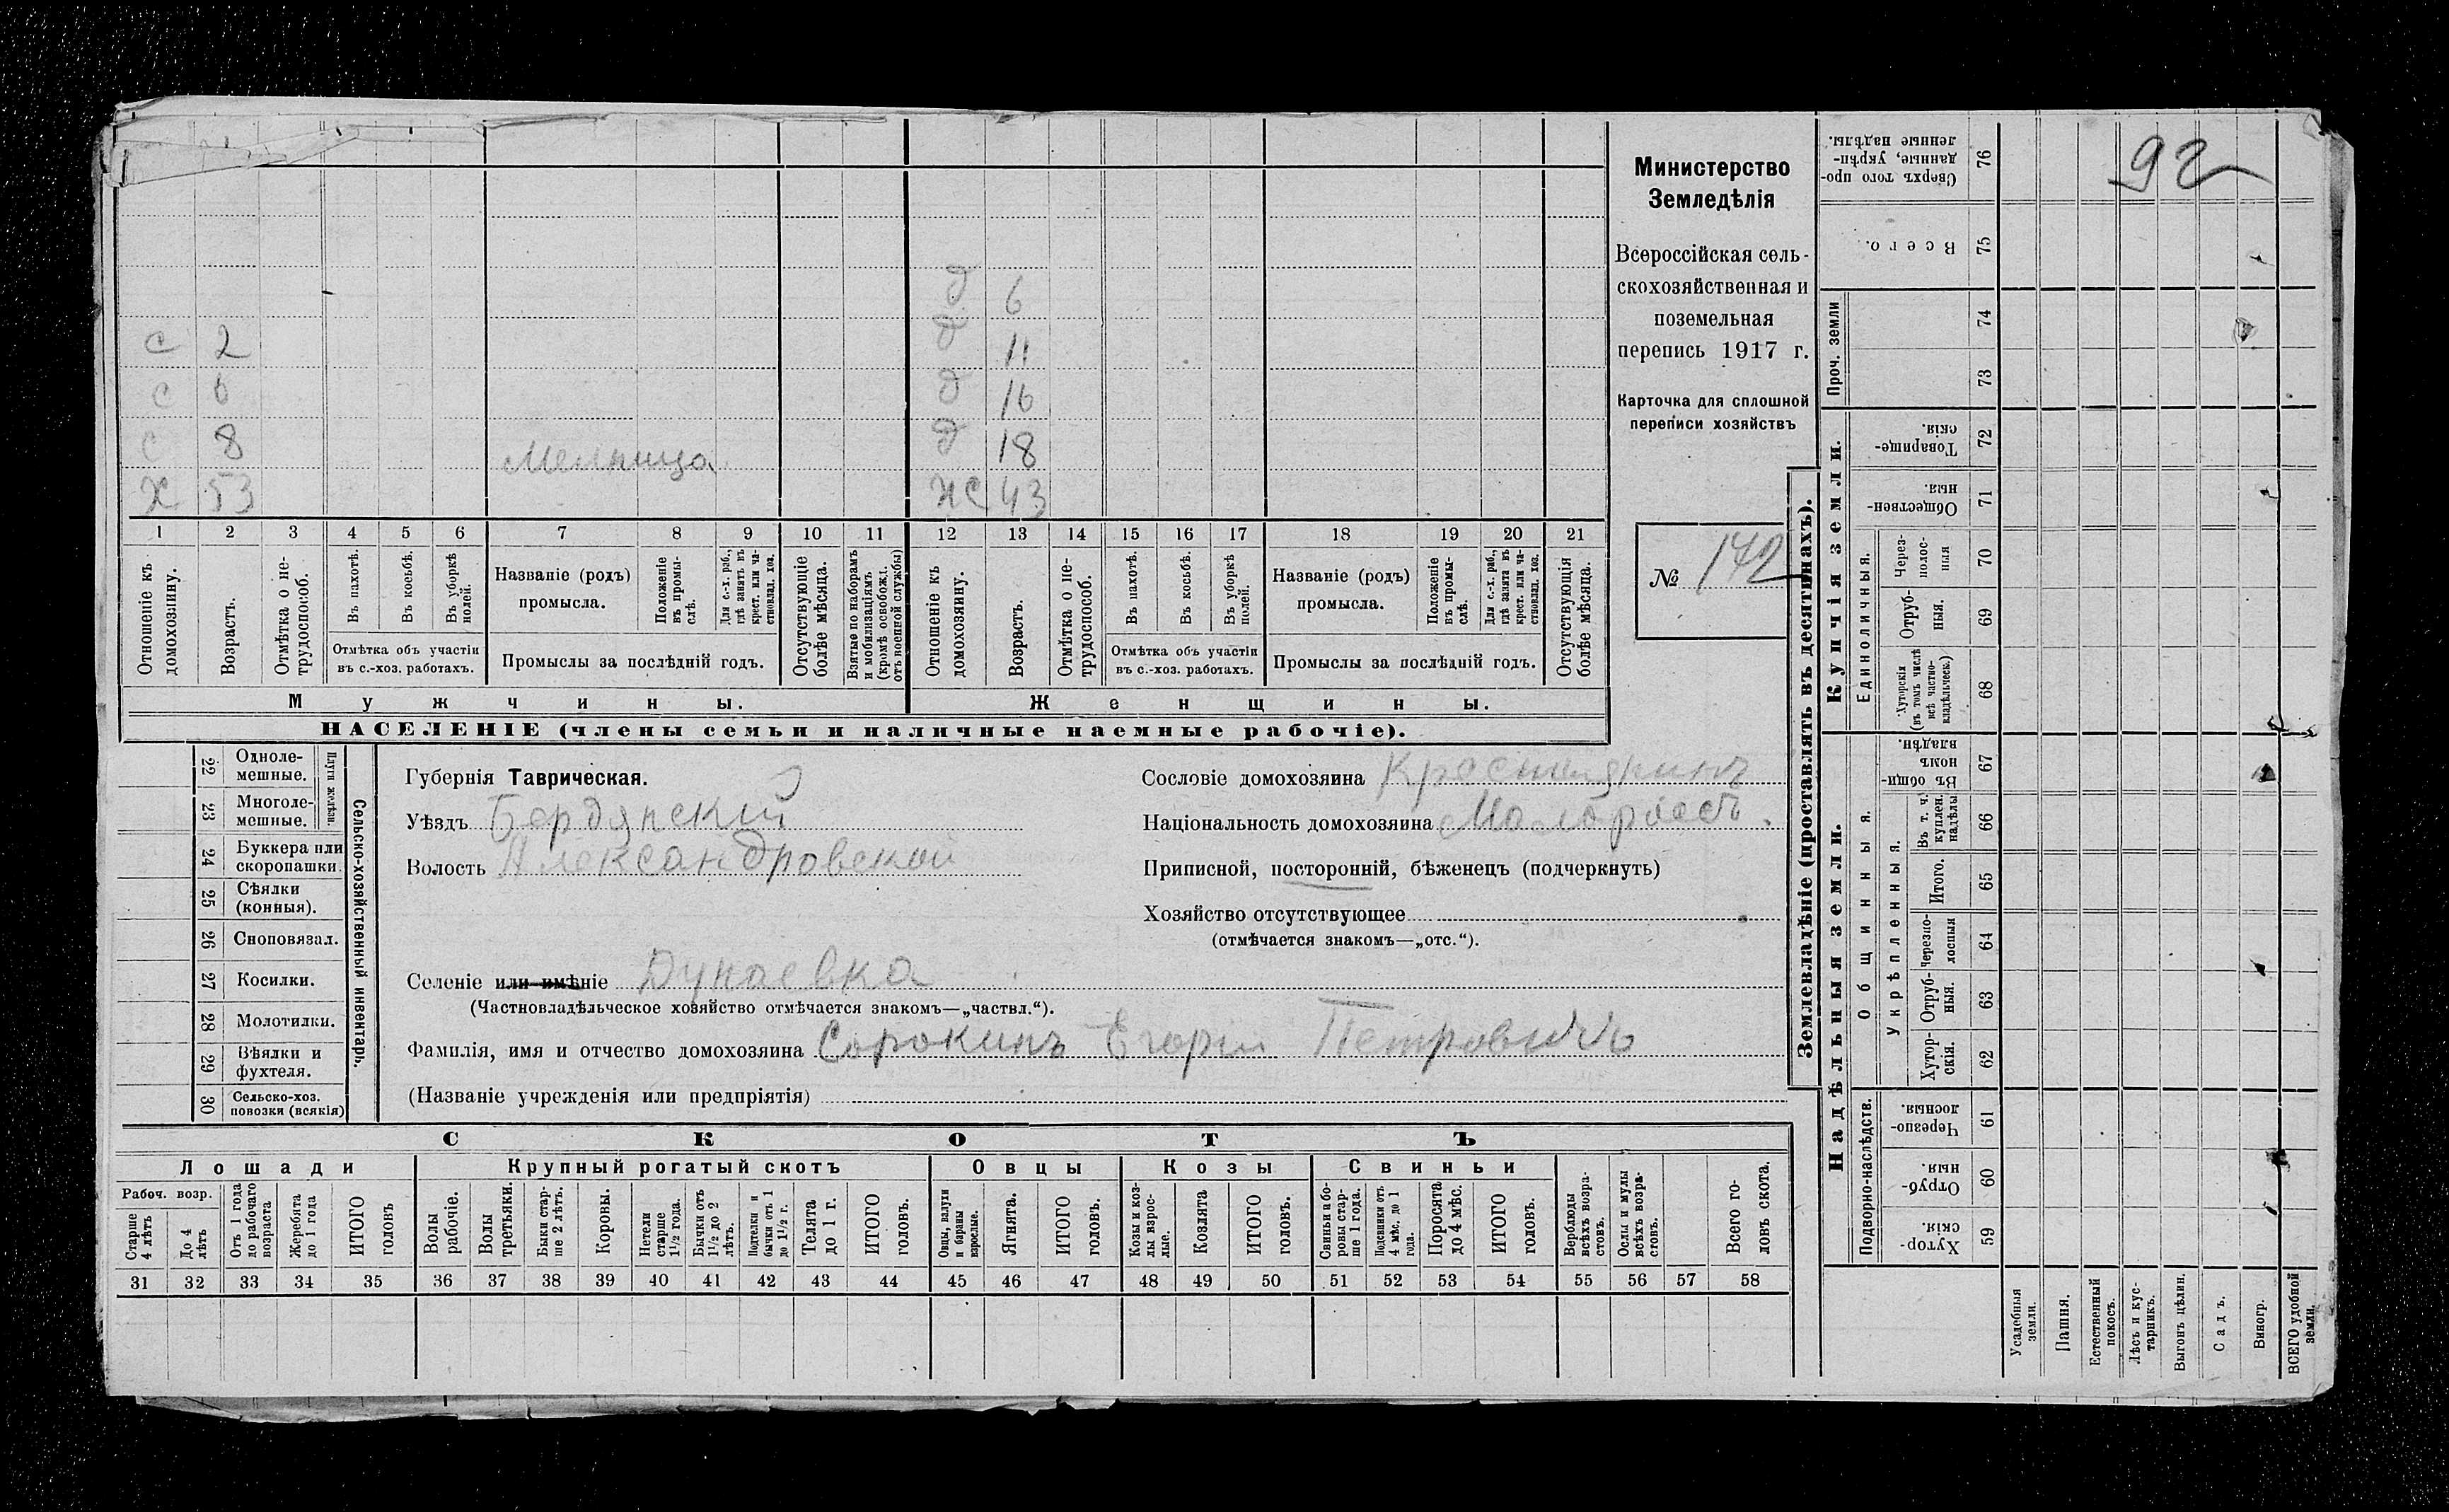 92
Министерство
Земледѣлія
Всероссійская сель-
скохозяйственная и
поземельная
перепись 1917 г.
Карточка для сплошной
переписи хозяйствъ
№ 142
д 6
с 2 д 11
с 6 д 16
с 8 д 18
Мельница
Х 53 ЖС 43
1 2 3 4 5 6 7 8 9 10 11 12 13 14 15 16 17 18 19 20 21
Отношеніе къ домохозяину.
Возрастъ.
Отмѣтка о не-трудоспособ.
Въ пахотѣ.
Въ косьбѣ.
Въ уборкѣ полей.
Отмѣтка объ участіи
въ с.-хоз. работахъ.
Названіе (родъ)
промысла.
Положеніе въ промы-слѣ.
Для с.-х. раб., гдѣ занятъ въ крест. или ча-стновлад. хоз.
Промыслы за послѣдній годъ.
Отсутствующіе болѣе мѣсяца.
Взятые по наборамъ и мобилизаціямъ (кромѣ освобожд. отъ военной службы)
Отношеніе къ домохозяину.
Возрастъ.
Отмѣтка о не-трудоспособ.
Въ пахотѣ.
Въ косьбѣ.
Въ уборкѣ полей.
Отмѣтка объ участіи
въ с.-хоз. работахъ.
Названіе (родъ)
промысла.
Положеніе въ промы-слѣ.
Для с.-х. раб., гдѣ занята въ крест. или ча-стновлад. хоз.
Промыслы за послѣдній годъ.
Отсутствующія болѣе мѣсяца.
Мужчины. Женщины.
НАСЕЛЕНІЕ (члены семьи и наличные наемные рабочіе).
Сельско-хозяйственный инвентарь.
Плуги желѣзн.
22 Одноле-мешные.
23 Многоле-мешные.
24 Буккера или скоропашки.
25 Сѣялки (конныя).
26 Сноповязал.
27 Косилки.
28 Молотилки.
29 Вѣялки и фухтеля.
30 Сельско-хоз. повозки (всякія)
Губернія Таврическая.
Уѣздъ Бердянский
Волость Александровской
Селеніе или имѣніе Дунаевка
(Частновладѣльческое хозяйство отмѣчается знакомъ—„частвл.“).
Фамилія, имя и отчество домохозяина Сорокинъ Егорий Петровичъ
(Названіе учрежденія или предпріятія)
Сословіе домохозяина
Національность домохозяина Малоросъ.
Приписной, посторонній, бѣженецъ (подчеркнуть)
Хозяйство отсутствующее
(отмѣчается знакомъ—„отс.“).
СКОТЪ
Лошади Крупный рогатый скотъ Овцы Козы Свиньи
Рабоч. возр.
Старше 4 лѣтъ
До 4 лѣтъ
Отъ 1 года до рабочаго возраста
Жеребята до 1 года
ИТОГО головъ
Волы рабочіе.
Волы третьяки.
Быки стар-ше 2 лѣтъ.
Коровы.
Нетели старше 1½ года.
Бычки отъ 1½ до 2 лѣтъ.
Подтелки и бычки отъ 1 до 1½ г.
Телята до 1 г.
ИТОГО головъ.
Овцы, валухи и бараны взрослые.
Ягнята.
ИТОГО головъ.
Козы и коз-лы взрос-лые.
Козлята
ИТОГО головъ.
Свиньи и бо-ровы стар-ше 1 года.
Подсвинки отъ 4 мѣс. до 1 года.
Поросята до 4 мѣс.
ИТОГО головъ.
Верблюды всѣхъ возра-стовъ.
Ослы и мулы всѣхъ возра-стовъ.
Всего го-ловъ скота.
31 32 33 34 35 36 37 38 39 40 41 42 43 44 45 46 47 48 49 50 51 52 53 54 55 56 57 58
Землевладѣніе (проставлять въ десятинахъ).
Сверхъ того про-данные, укрѣп-ленные надѣлы. 76
Всего. 75
Проч. земли 74 73
Купчія земли.
Товарище-скія. 72
Обществен-ныя. 71
Единоличныя.
Через-полос-ныя 70
Отруб-ныя. 69
Хуторскія (въ томъ числѣ всѣ частно-владѣльческ.) 68
Надѣльныя земли.
Общинныя.
Въ общи-номъ владѣн. 67
Укрѣпленныя.
Въ т. ч. куплен. надѣлы 66
Итого. 65
Черезпо-лосныя 64
Отруб-ныя. 63
Хутор-скія. 62
Подворно-наслѣдств.
Черезпо-лосныя. 61
Отруб-ныя. 60
Хутор-скія. 59
Усадебныя земли.
Пашня.
Естественный покосъ.
Лѣсъ и кус-тарникъ.
Выгонъ цѣлин.
Садъ.
Виногр.
ВСЕГО удобной земли.